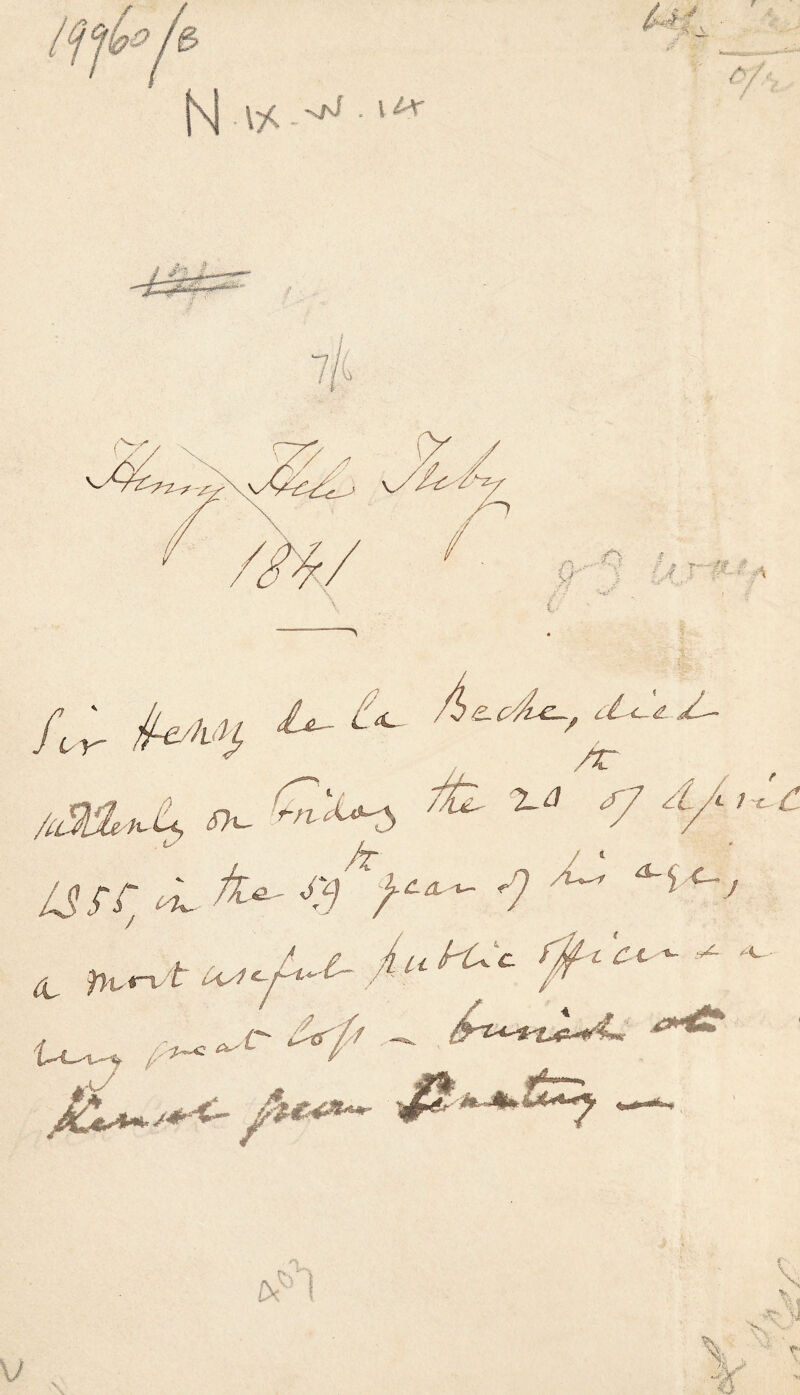 19960/B
N.IX.W.14
o/r
7/6
Henry Hele
1841
Sir Henry de la Beche, died
suddenly on Friday the 20th of April
1855, in the 59th year of his age,
a most useful public officer & a
very great loss - buried at
Kensal green Cemetery -
403